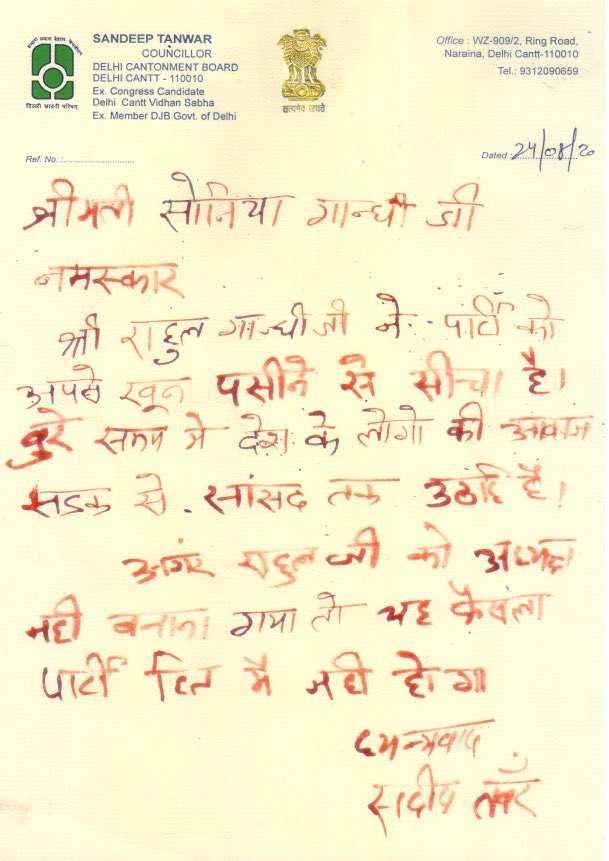 SANDEEP TANWAR
COUNCILLOR
DELHI CANTONMENT BOARD
DELHI CANTT - 110010
Ex. Congress Candidate
Delhi Cantt Vidhan Sabha
Ex. Member DJB Govt. of Delhi
दिल्ली छावनी परिषद्
सत्यमेव जयते
Office : WZ-909/2, Ring Road,
Naraina, Delhi Cantt-110010
Tel.: 9312090659
Ref. No. :............................
Dated : 24/08/20
श्रीमती सोनिया गान्धी जी
नमस्कार
श्री राहुल गान्धी जी ने पार्टी को
अपने खून पसीने से सीचा है।
बुरे समय मे देश के लोगो की आवाज
सडक से सांसद तक उठाई है।
अगर राहुल जी को अध्यक्ष
नही बनाया गया तो यह फैसला
पार्टी हित मै नही होगा
धन्यवाद
सदीप तवँर